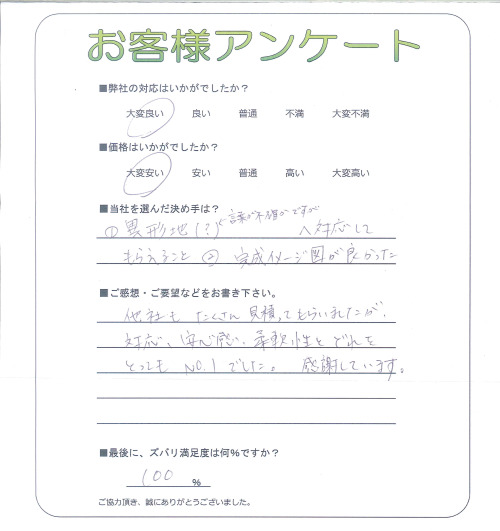 お客様アンケート
■弊社の対応はいかがでしたか？
大変良い 良い 普通 不満 大変不満
■価格はいかがでしたか？
大変安い 安い 普通 高い 大変高い
■当社を選んだ決め手は？
言葉が不確かですが
① 異形地(?) へ対応して
もらえること ② 完成イメージ図が良かった
■ご感想・ご要望などをお書き下さい。
他社も たくさん 見積ってもらいましたが、
対応、安心感、柔軟性と どれを
とっても NO.1 でした。 感謝しています。
■最後に、ズバリ満足度は何％ですか？
100 ％
ご協力頂き、誠にありがとうございました。